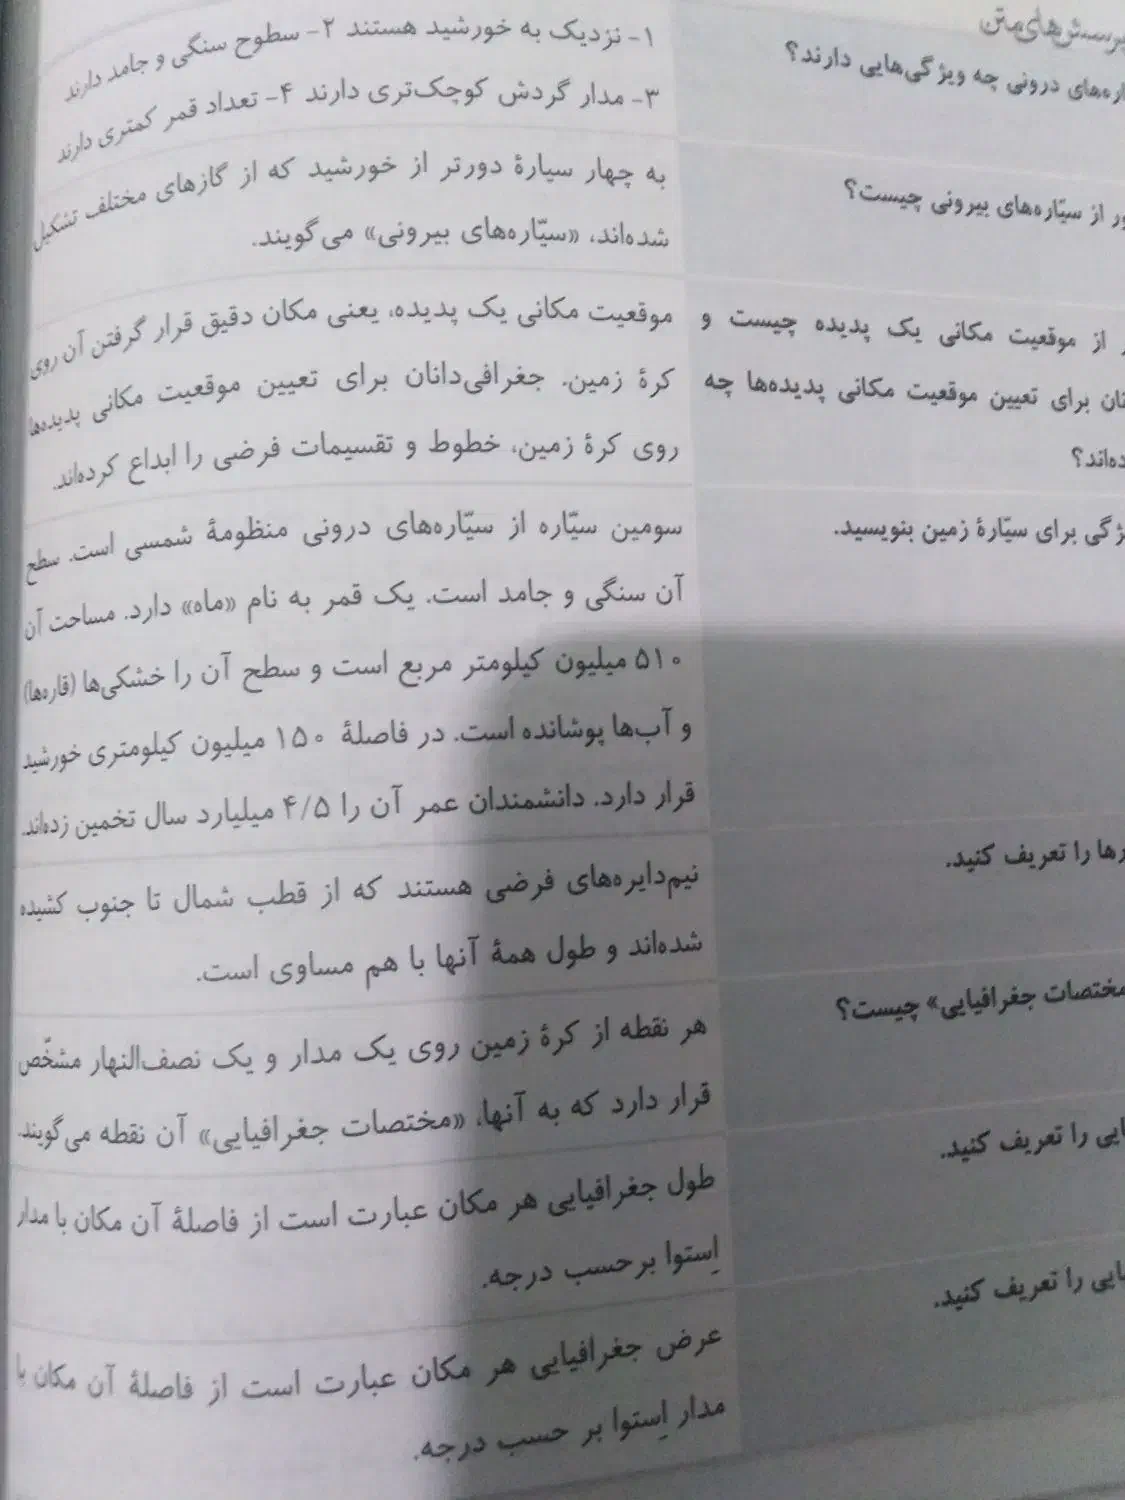 پرسش‌های متن
درونی چه ویژگی‌هایی دارند؟
۱- نزدیک به خورشید هستند ۲- سطوح سنگی و جامد دارند
۳- مدار گردش کوچک‌تری دارند ۴- تعداد قمر کمتری دارند
از سیّاره‌های بیرونی چیست؟
به چهار سیارهٔ دورتر از خورشید که از گازهای مختلف تشکیل
شده‌اند، «سیّاره‌های بیرونی» می‌گویند.
از موقعیت مکانی یک پدیده چیست و
برای تعیین موقعیت مکانی پدیده‌ها چه
موقعیت مکانی یک پدیده، یعنی مکان دقیق قرار گرفتن آن روی
کرهٔ زمین. جغرافی‌دانان برای تعیین موقعیت مکانی پدیده‌ها
روی کرهٔ زمین، خطوط و تقسیمات فرضی را ابداع کرده‌اند.
برای سیّارهٔ زمین بنویسید.
سومین سیّاره از سیّاره‌های درونی منظومهٔ شمسی است. سطح
آن سنگی و جامد است. یک قمر به نام «ماه» دارد. مساحت آن
۵۱۰ میلیون کیلومتر مربع است و سطح آن را خشکی‌ها (قاره‌ها)
و آب‌ها پوشانده است. در فاصلهٔ ۱۵۰ میلیون کیلومتری خورشید
قرار دارد. دانشمندان عمر آن را ۴/۵ میلیارد سال تخمین زده‌اند.
را تعریف کنید.
نیم‌دایره‌های فرضی هستند که از قطب شمال تا جنوب کشیده
شده‌اند و طول همهٔ آنها با هم مساوی است.
مختصات جغرافیایی» چیست؟
هر نقطه از کرهٔ زمین روی یک مدار و یک نصف‌النهار مشخّص
قرار دارد که به آنها، «مختصات جغرافیایی» آن نقطه می‌گویند.
را تعریف کنید.
طول جغرافیایی هر مکان عبارت است از فاصلهٔ آن مکان با مدار
اِستوا برحسب درجه.
را تعریف کنید.
عرض جغرافیایی هر مکان عبارت است از فاصلهٔ آن مکان با
مدار اِستوا بر حسب درجه.